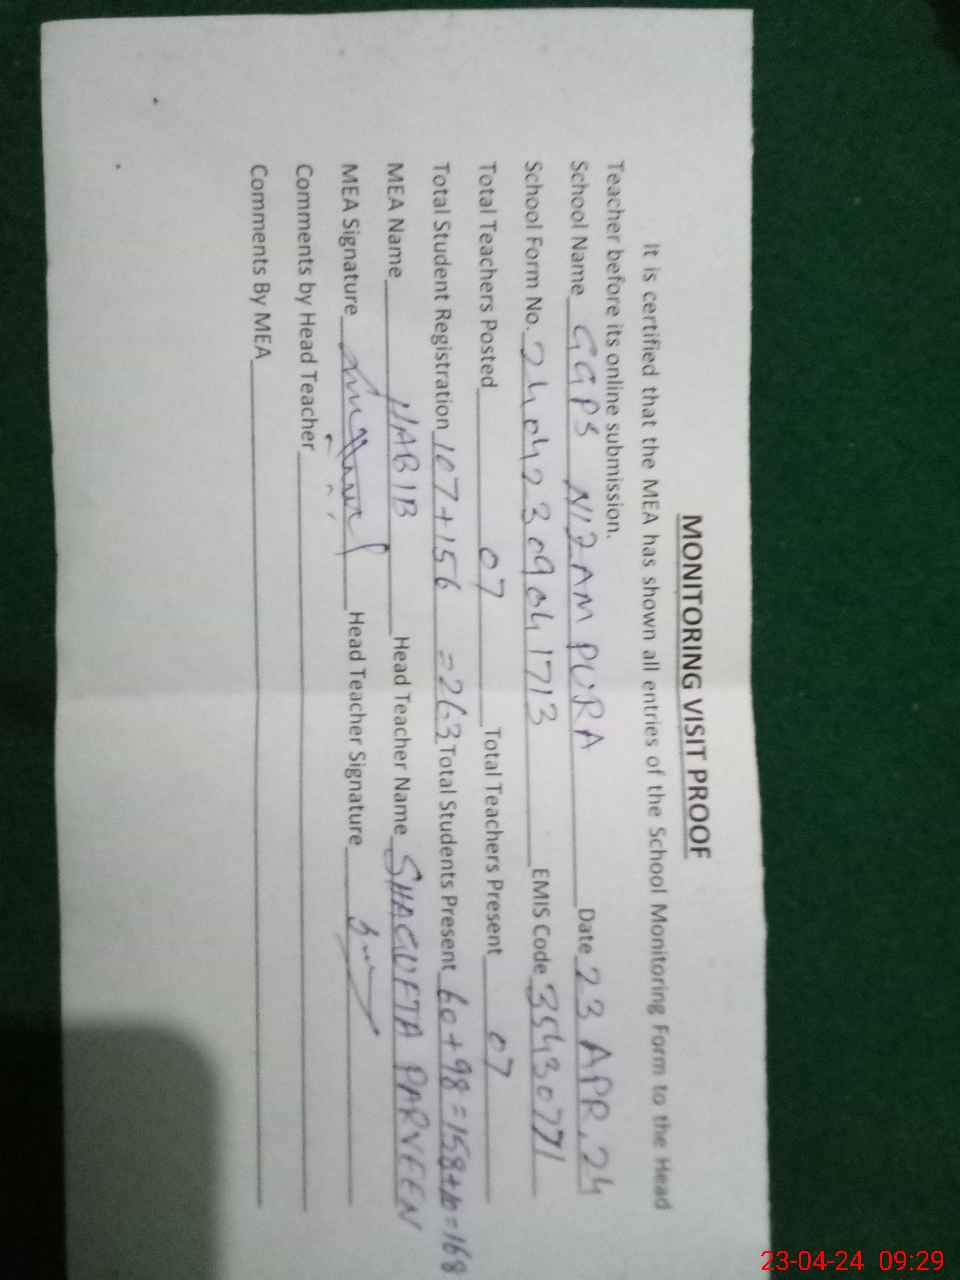 MONITORING VISIT PROOF
It is certified that the MEA has shown all entries of the School Monitoring Form to the Head
Teacher before its online submission.
School Name GGPS NIZAMPURA Date 23 APR, 24
School Form No. 24042309041713 EMIS Code 35430771
Total Teachers Posted 07 Total Teachers Present 07
Total Student Registration 107+156 =263 Total Students Present 60+98=158+10=168
MEA Name HABIB Head Teacher Name SHAGUFTA PARVEEN
MEA Signature Head Teacher Signature
Comments by Head Teacher
Comments By MEA
23-04-24 09:29